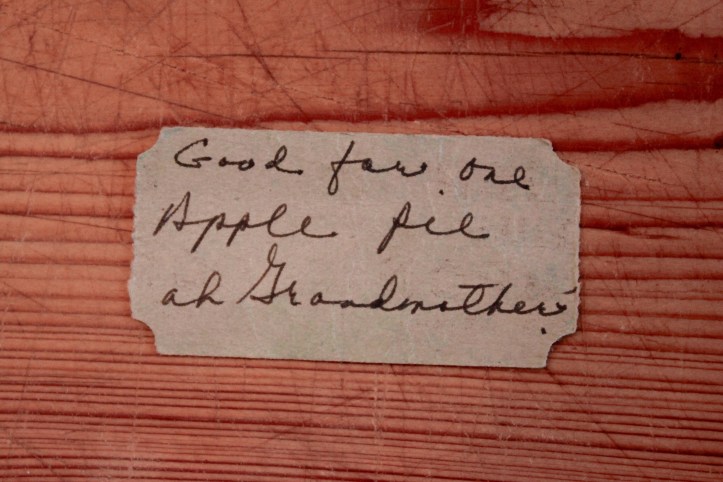 Good for one
Apple pie
at Grandmother's